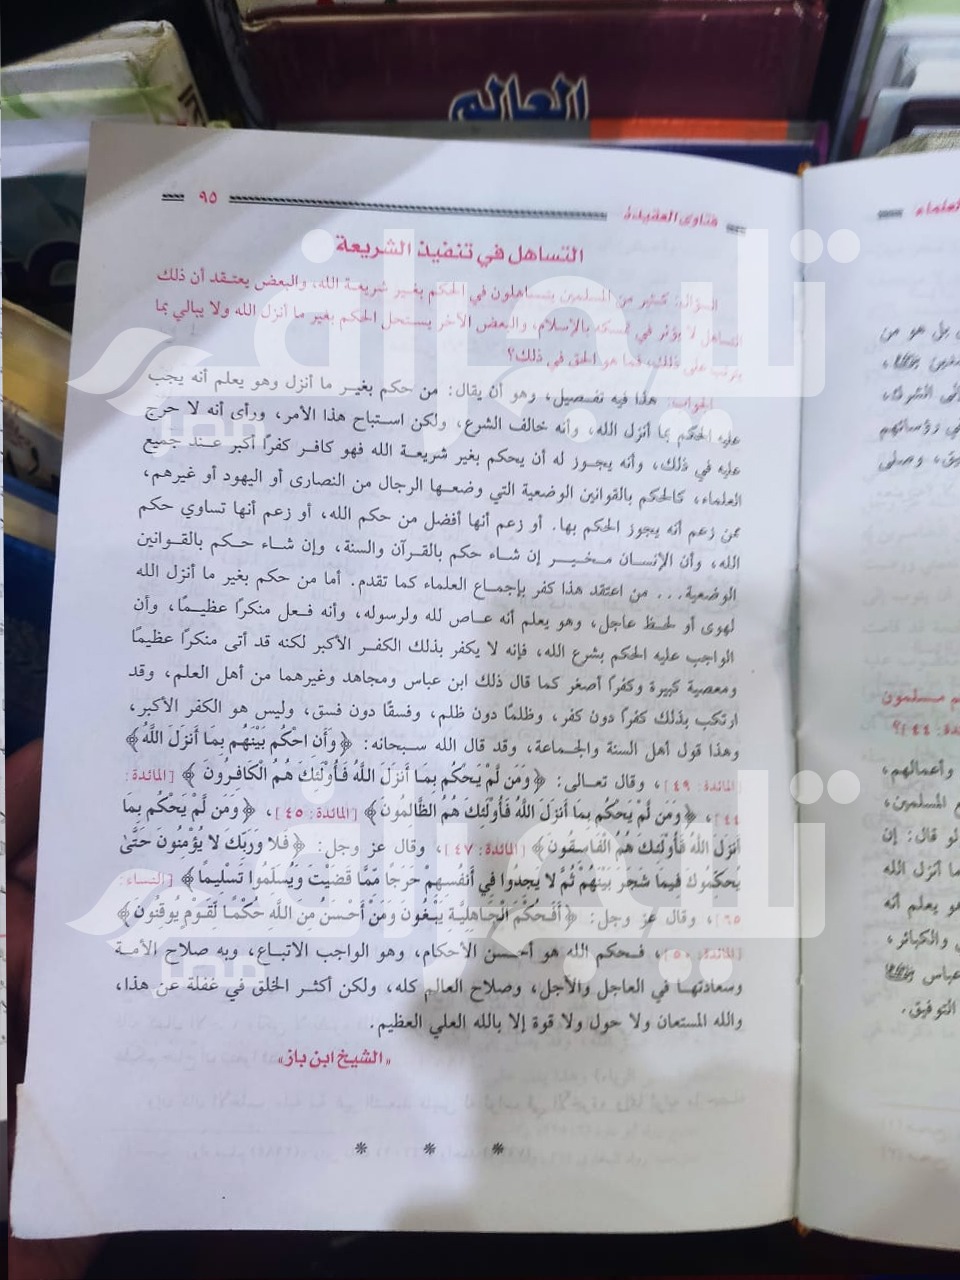 العالم
فتاوى العقيدة
٩٥
التساهل في تنفيذ الشريعة
السؤال: كثير من المسلمين يتساهلون في الحكم بغير شريعة الله، والبعض يعتقد أن ذلك
التساهل لا يؤثر في تمسكه بالإسلام، والبعض الآخر يستحل الحكم بغير ما أنزل الله ولا يبالي بما
يترتب على ذلك، فما هو الحق في ذلك؟
الجواب: هذا فيه تفصيل، وهو أن يقال: من حكم بغير ما أنزل وهو يعلم أنه يجب
عليه الحكم بما أنزل الله، وأنه خالف الشرع، ولكن استباح هذا الأمر، ورأى أنه لا حرج
عليه في ذلك، وأنه يجوز له أن يحكم بغير شريعة الله فهو كافر كفرًا أكبر عند جميع
العلماء، كالحكم بالقوانين الوضعية التي وضعها الرجال من النصارى أو اليهود أو غيرهم،
ممن زعم أنه يجوز الحكم بها. أو زعم أنها أفضل من حكم الله، أو زعم أنها تساوي حكم
الله، وأن الإنسان مخير إن شاء حكم بالقرآن والسنة، وإن شاء حكم بالقوانين
الوضعية... من اعتقد هذا كفر بإجماع العلماء كما تقدم. أما من حكم بغير ما أنزل الله
لهوى أو لحظ عاجل، وهو يعلم أنه عاص لله ولرسوله، وأنه فعل منكرًا عظيمًا، وأن
الواجب عليه الحكم بشرع الله، فإنه لا يكفر بذلك الكفر الأكبر لكنه قد أتى منكرًا عظيمًا
ومعصية كبيرة وكفرًا أصغر كما قال ذلك ابن عباس ومجاهد وغيرهما من أهل العلم، وقد
ارتكب بذلك كفرًا دون كفر، وظلمًا دون ظلم، وفسقًا دون فسق، وليس هو الكفر الأكبر،
وهذا قول أهل السنة والجماعة، وقد قال الله سبحانه: ﴿وَأَنِ احْكُم بَيْنَهُم بِمَا أَنزَلَ اللَّهُ﴾
[المائدة: ٤٩]، وقال تعالى: ﴿وَمَن لَّمْ يَحْكُم بِمَا أَنزَلَ اللَّهُ فَأُوْلَئِكَ هُمُ الْكَافِرُونَ﴾ [المائدة:
٤٤]، ﴿وَمَن لَّمْ يَحْكُم بِمَا أَنزَلَ اللَّهُ فَأُوْلَئِكَ هُمُ الظَّالِمُونَ﴾ [المائدة: ٤٥]، ﴿وَمَن لَّمْ يَحْكُم بِمَا
أَنزَلَ اللَّهُ فَأُوْلَئِكَ هُمُ الْفَاسِقُونَ﴾ [المائدة: ٤٧]، وقال عز وجل: ﴿فَلا وَرَبِّكَ لا يُؤْمِنُونَ حَتَّىٰ
يُحَكِّمُوكَ فِيمَا شَجَرَ بَيْنَهُمْ ثُمَّ لا يَجِدُوا فِي أَنفُسِهِمْ حَرَجًا مِّمَّا قَضَيْتَ وَيُسَلِّمُوا تَسْلِيمًا﴾ [النساء:
٦٥]، وقال عز وجل: ﴿أَفَحُكْمَ الْجَاهِلِيَّةِ يَبْغُونَ وَمَنْ أَحْسَنُ مِنَ اللَّهِ حُكْمًا لِّقَوْمٍ يُوقِنُونَ﴾
[المائدة: ٥٠]، فحكم الله هو أحسن الأحكام، وهو الواجب الاتباع، وبه صلاح الأمة
وسعادتها في العاجل والآجل، وصلاح العالم كله، ولكن أكثر الخلق في غفلة عن هذا،
والله المستعان ولا حول ولا قوة إلا بالله العلي العظيم.
«الشيخ ابن باز»
* * *
بل هو من
الشرك،
ورؤسائهم
وصلى
مسلمون
٤٤]؟
وأعمالهم،
المسلمين،
لو قال: إن
ما أنزل الله
هو يعلم أنه
والكبائر،
عباس
التوفيق.
تليجراف
مصر
تليجراف
مصر